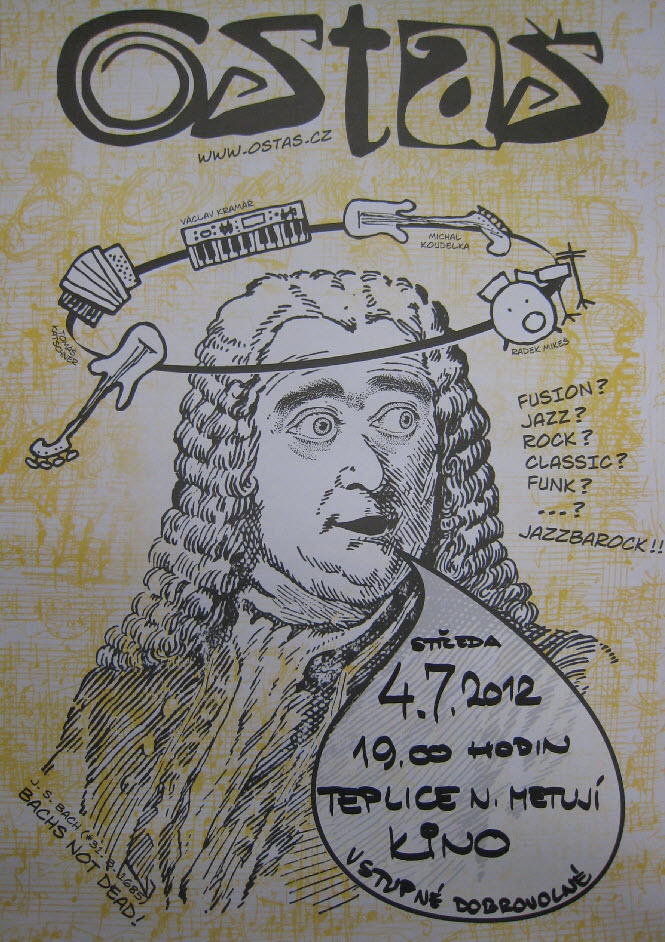 Ostaš
WWW.OSTAS.CZ
VÁCLAV KRAMÁR
MICHAL
KOUDELKA
RADEK MIKEŠ
TOMÁŠ
FUSION?
JAZZ?
ROCK?
CLASSIC?
FUNK?
...?
JAZZBAROCK!!
STŘEDA
4.7.2012
19,00 HODIN
TEPLICE N. METUJÍ
KINO
VSTUPNÉ DOBROVOLNÉ
J. S. BACH (*31. 3. 1685)
BACHS NOT DEAD!